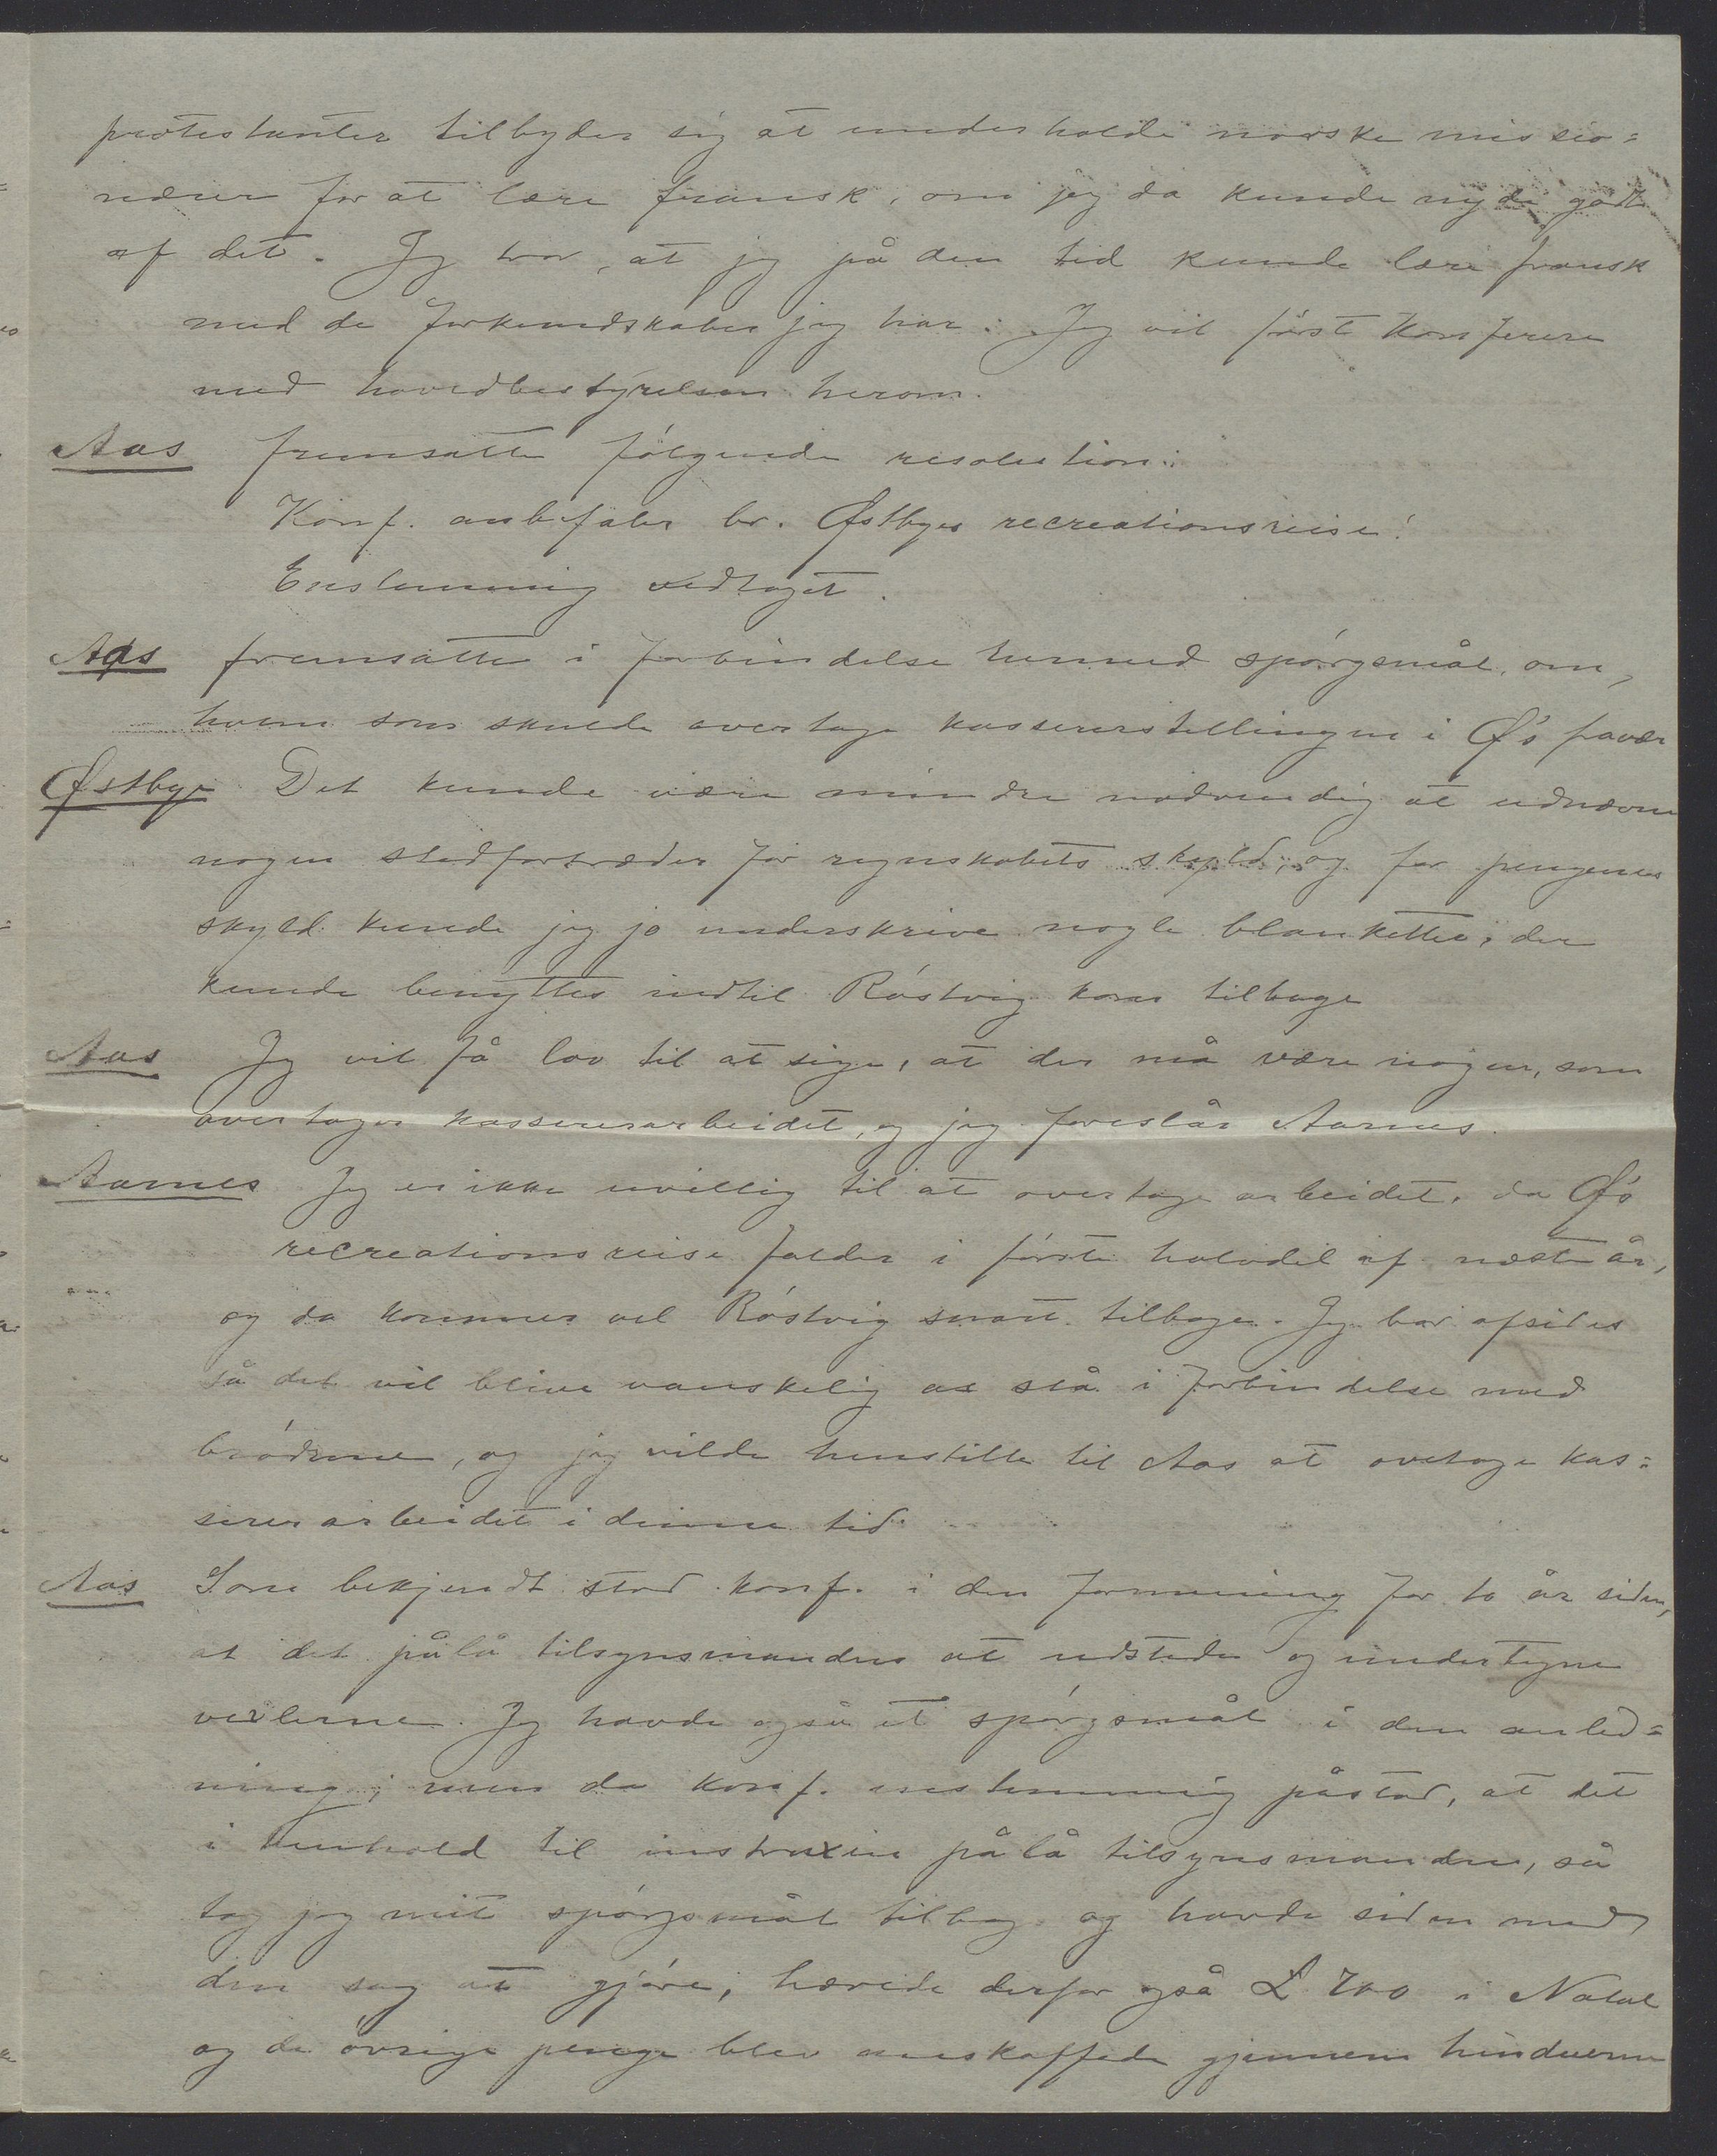 protestanter tilbyder sig at underholde norske missio=
nærer for at lære fransk, om jeg da kunde nyde godt
af det. Jeg tror, at jeg på den tid kunde lære fransk
med de forkundskaber jeg har. Jeg vil først konferere
med hovedbestyrelsen herom.
Aas fremsatte følgende resolution:
Konf. anbefaler br. Østbyes recreationsreise!
Enstemmig vedtaget.
Aas fremsatte i forbindelse hermed spørgsmål om,
hvem som skulde overtage kassererstillingen i Ø's fravær
Østbye Det kunde være mindre nødvendig at udnævne
nogen stedfortræder for regnskabets skyld, og for pengenes
skyld kunde jeg jo underskrive nogle blanketter, der
kunde benyttes indtil Röstvig kom tilbage
Aas Jeg vil få lov til at sige, at der må være nogen, som
overtager kassererarbeidet, og jeg foreslår Aarnes.
Aarnes Jeg er ikke uvillig til at overtage arbeidet, da Ø's
recreationsreise falder i første halvdel af næste år,
og da kommer vel Röstvig snart tilbage. Jeg bor afsides
så det vil blive vanskelig at stå i forbindelse med
brødrene, og jeg vilde henstille til Aas at overtage kas=
sererarbeidet i denne tid.
Aas Som bekjendt stod konf. i den formening for to år siden,
at det pålå tilsynsmanden at udstede og undertegne
vexlerne. Jeg havde også et spørgsmål i den anled=
ning; men da konf. enstemmig påstod, at det
i henhold til instruxen pålå tilsynsmanden, så
tog jeg mit spørgsmål tilbage og havde siden med
den sag at gjøre; hævede derfor også £ 700 i Natal
og de øvrige penge blev anskaffede gjennem hinduerne